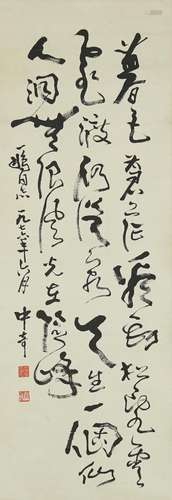 暮色蒼茫看勁松亂雲
飛渡仍從容天生一個仙
人洞無限風光在險峰
同志 一九七六年六月 中奇